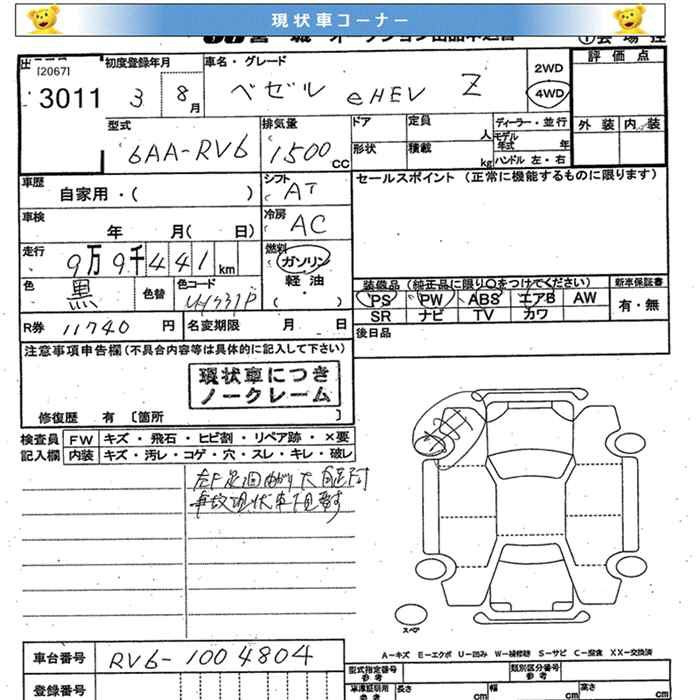 現状車コーナー
[2067]
3011
初度登録年月
3 8月
車名・グレード
ベゼル eHEV Z
2WD
4WD
評価点
外装 内装
型式
6AA-RV6
排気量
1500 CC
ドア
定員
人
形状
積載
kg
ディーラー・並行
モデル年式 年
ハンドル 左・右
車歴
自家用・( )
シフト
AT
セールスポイント (正常に機能するものに限ります)
車検
年 月( 日)
冷房
AC
走行
9万9千441km
燃料
ガソリン
軽油
( ・ )
色
黒
色替
色コード
装備品 (純正品に限り○をつけてください)
PS PW ABS エアB AW
SR ナビ TV カワ
新車保証書
有・無
R券 11740 円
名変期限 月 日
後日品
注意事項申告欄(不具合内容等は具体的に記入して下さい)
現状車につき
ノークレーム
修復歴 有 〔箇所 〕
検査員 FW キズ・飛石・ヒビ割・リペア跡・×要
記入欄 内装 キズ・汚レ・コゲ・穴・スレ・キレ・破レ
事故現状車下見要す
スペア
A−キズ E−エクボ U−凹み W−補修跡 S−サビ C−腐食 XX−交換済
車台番号 RV6-1004804
登録番号
型式指定番号
参考
類別区分番号
参考
車庫証明用
参考
長さ cm
幅 cm
高さ cm